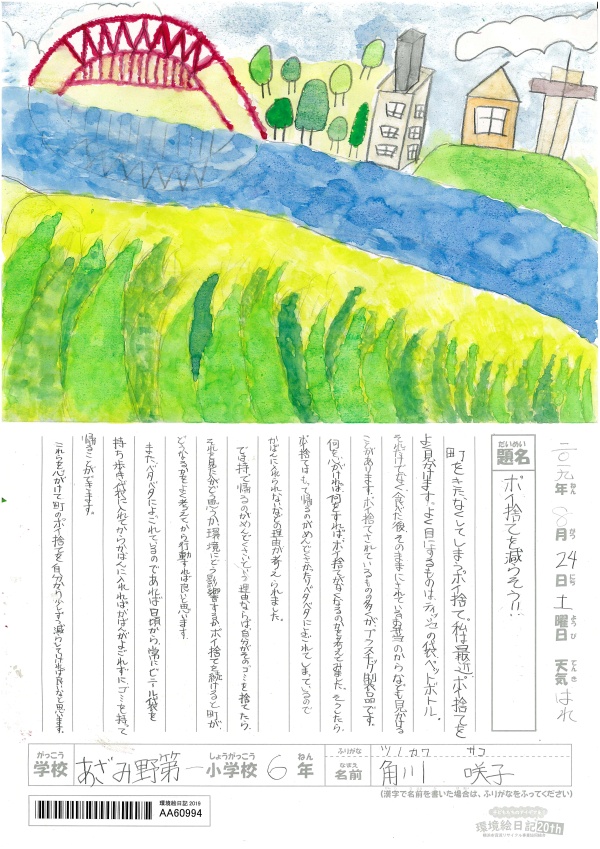 二〇一九年 8月 24日 土曜日 天気 はれ
ねん がつ にち ようび てんき
だいめい
題名
ポイ捨てを減らそう!!
町をきたなくしてしまうポイ捨て。私は最近、ポイ捨てを
よく見かけます。よく目にするものは、ティッシュの袋、ペットボトル。
それだけでなく食べた後、そのままにされているお弁当のからなども見かける
ことがあります。ポイ捨てされているものの多くが、プラスチック製品です。
何を心がければ、何をすれば、ポイ捨てがなくなるのかを考えてみました。そうしたら、
ポイ捨ては、もって帰るのがめんどくさかったり、ベタベタによごれてしまっているので
かばんに入れられないなどの理由が考えられました。
では、持て帰るのがめんどくさいという理由ならば、自分がそのゴミを捨てたら、
それを見た人がどう思うか、環境にどう影響するか、ポイ捨てを続けると町が、
どうなるかをよく考えてから行動すれば良いと思います。
また、ベタベタによごれているのであれば、日頃から常にビニール袋を
持ち歩き、袋に入れてからかばんに入れればかばんがよごれずにゴミを持って
帰ることができます。
これらを心がけて町のポイ捨てを自分から少しずつ減らしていければ良いなと思います。
がっこう しょうがっこう ねん
学校 あざみ野第一小学校 6年
ふりがな ツノカワ サコ
なまえ
名前 角川 咲子
(漢字で名前を書いた場合は、ふりがなをふってください)
環境絵日記 2019
AA60994
環境絵日記20th